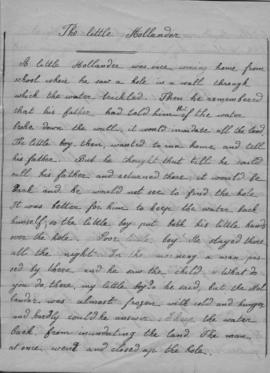 The little Hollander
A little Hollander was once coming home from
school when he saw a hole in a wall through
which the water trickled. Then he remembered
that his father had told him "if the water
broke down the wall, it would inundate all the land.
The little boy then, wanted to run home and tell
his father. But he thought that till he could
call his father and returned there, it would be
dark and he would not see to find the hole.
It was better for him to keep the water back
himself, so the little boy put both his little hands
over the hole. Poor little boy. He stayed there
all the night. In the morning a man pas-
sed by there, and he saw the child. "What do
you do there, my little boy?" he cried, but the Hol-
lander was almost frozen with cold and hunger
and hardly could he answer the water
back from inundating the land. The man,
at once, went and closed up the hole.